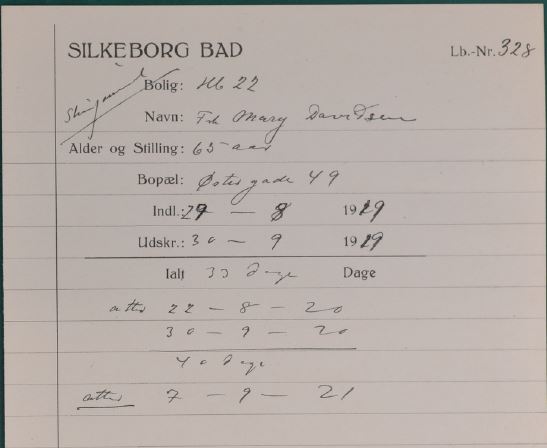 SILKEBORG BAD Lb.-Nr. 328
Bolig: Hb 22
Navn: Frk Mary Davidsen
Alder og Stilling: 65 aar
Bopæl: Østergade 49
Indl.: 29 – 8 1919
Udskr.: 30 – 9 1919
Ialt 33 Dage Dage
atter 22 – 8 – 20
30 – 9 – 20
40 Dage
atter 7 – 9 – 21